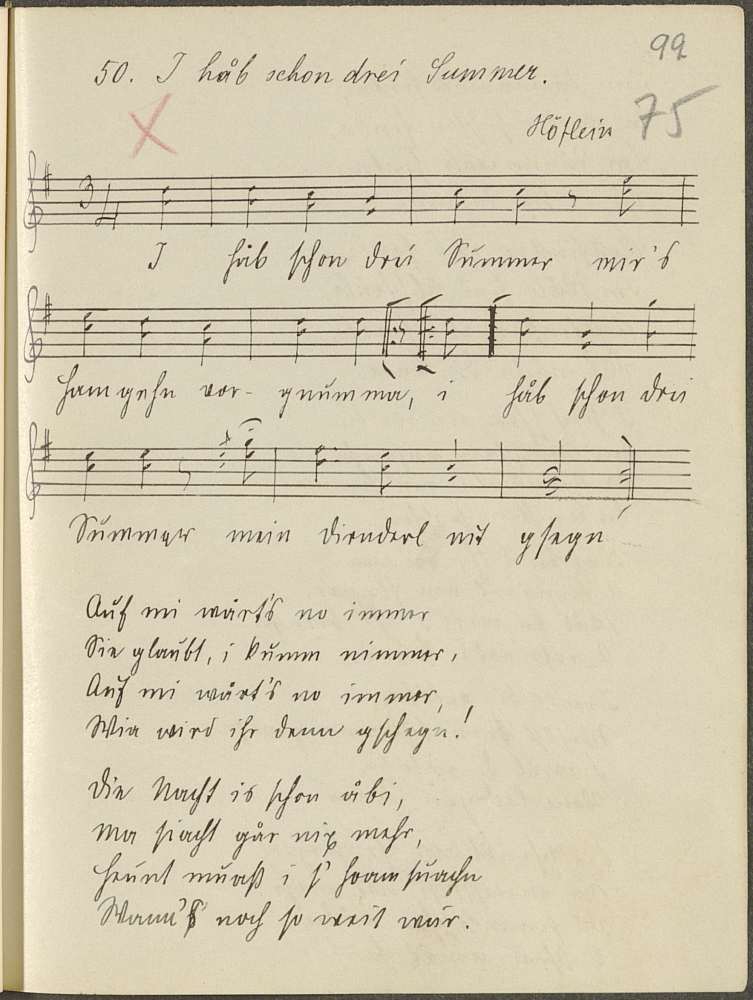 99
50. I håb schon drei Summer.
Höflein 75
I håb schon drei Summer mir's
hamgehn vor- gnumma, i håb schon drei
Summer mein Dirnderl nit gsegn
Auf mi wårt's no immer
Sie glaubt, i kumm nimmer,
Auf mi wårt's no immer,
Wia wird ihr denn gschegn!
Die Nacht is schon åbi,
Ma siacht går nix mehr,
Heunt muaß i s' hoamsuachn
Wann's noch so weit wår.